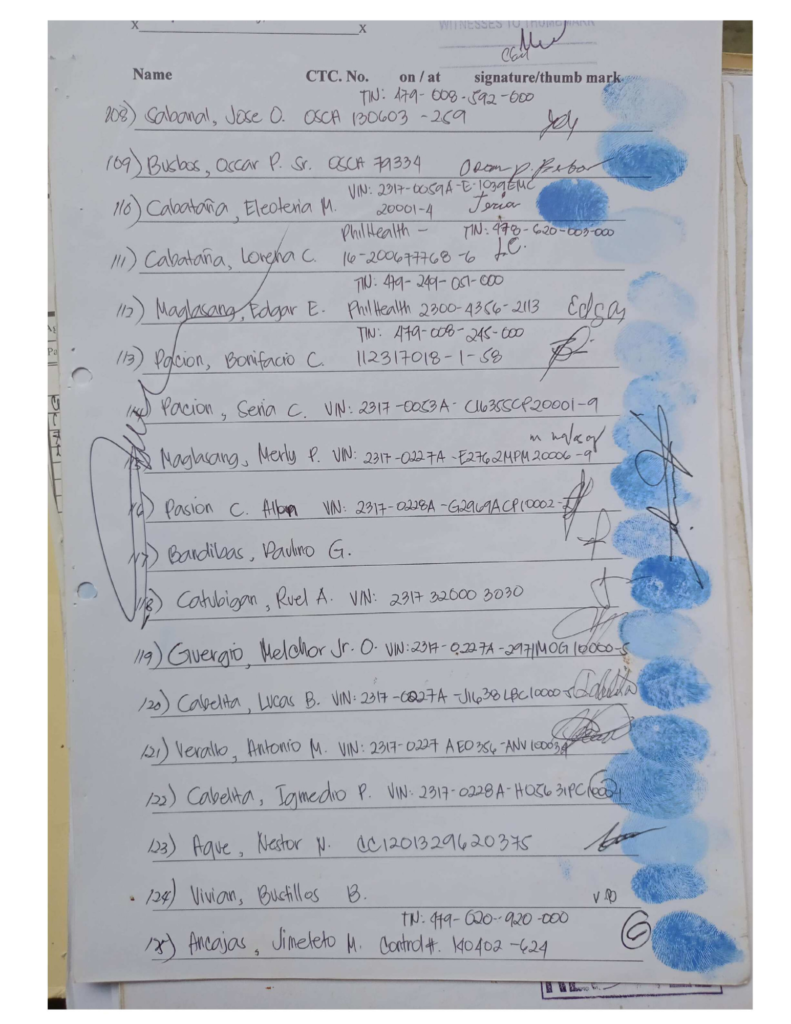 X____________________X
WITNESSES TO THUMBMARK
Name CTC. No. on / at signature/thumb mark
TIN: 479-008-592-000
108) Sabanal, Jose O. OSCA 130603 -259
109) Busbos, Oscar P. Sr. OSCA 79334
VIN: 2317-0059A-E-1039EMC
110) Cabataña, Eleoteria M. 20001-4
PhilHealth - TIN: 478-620-003-000
111) Cabataña, Lorena C. 16-200677768-6 L.C.
TIN: 479-249-051-000
112) Maglasang, Edgar E. PhilHealth 2300-4356-2113 Edgar
TIN: 479-008-245-000
113) Pacion, Bonifacio C. 112317018-1-58
114) Pacion, Seria C. VIN: 2317-0053A-C1635SCP20001-9
115) Maglasang, Merly P. VIN: 2317-0227A-E2762MPM20006-9
116) Pasion C. Alban VIN: 2317-0228A-G2969ACP10002-
117) Bandibas, Paulino G.
118) Catubigan, Ruel A. VIN: 2317 32000 3030
119) Guergio, Melchor Jr. O. VIN: 2317-0227A-2971MOG10000-5
120) Cabelita, Lucas B. VIN: 2317-0227A-J1638LBC10000-5
121) Verallo, Antonio M. VIN: 2317-0227 AE0356-ANV10003
122) Cabelita, Igmedio P. VIN: 2317-0228A-H0563IPC10002
123) Aque, Nestor N. CC1201329620375
124) Vivian, Bustillos B.
TN: 479-620-920-000
125) Ancajas, Jimeleto M. Control#. 140402 -624